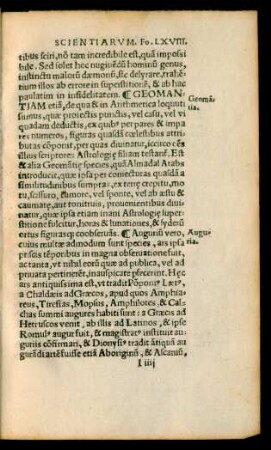 SCIENTIARVM. Fo. LXVIII.
tibus sciri, nō tam incredibile est, quā impossi
bile. Sed solet hoc nugiuendū hominū genus,
instinctu malorū dæmonū, sic delyrare, trahē
tium illos ab errore in superstitionē, & ab hac
paulatim in insidelitatem. ¶ GEOMAN-
TIAM etiā, de qua & in Arithmetica loquuti
sumus, quæ proiectis punctis, vel casu, vel vi
quadam deductis, ex quibꝰ per pares & impa
res numeros, figuras quasdā cœlestibus attri
butas cōponit, per quas diuinatur, iccirco oēs
illius scriptores Astrologię filiam testant. Est
& alia Geomātię species, quā Almadal Arabs
introducit, quæ ipsa per coniecturas quasdā a
similitudinibus sumptas, ex terrę crepitu, mo
tu, scissura, tumore, vel sponte, vel ab æstu &
caumate, aut tonitruis, prouenientibus diui-
natur, quæ ipsa etiam inani Astrologię super-
stitione fulcitur, horas & lunationes, & syderū
ortus figurasq; coobseruās. ¶ Augurii vero,
cuius multæ admodum sunt species, ars ipsa
priscis tēporibus in magna obseruatione fuit,
ac tanta, vt nihil eorū quæ ad publica, vel ad
priuata pertinerēt, inauspicate pficerint. Hęc
ars antiquissima est, vt tradit Pōponiꝰ Lætꝰ,
a Chaldæis ad Græcos, apud quos Amphia-
raus, Tiresias, Mopsus, Amphilotes & Cal-
chas summi augures habiti sunt: a Græcis ad
Hetruscos venit, ab illis ad Latinos, & ipse
Romulꝰ augur fuit, & magistratꝰ instituit au-
guriis cōfirmari, & Dionysiꝰ tradit ātiquā au
gurādi artē fuisse etiā Aboriginū, & Ascaniū,
I iiij
Geomā-
tia.
Augu-
ria.